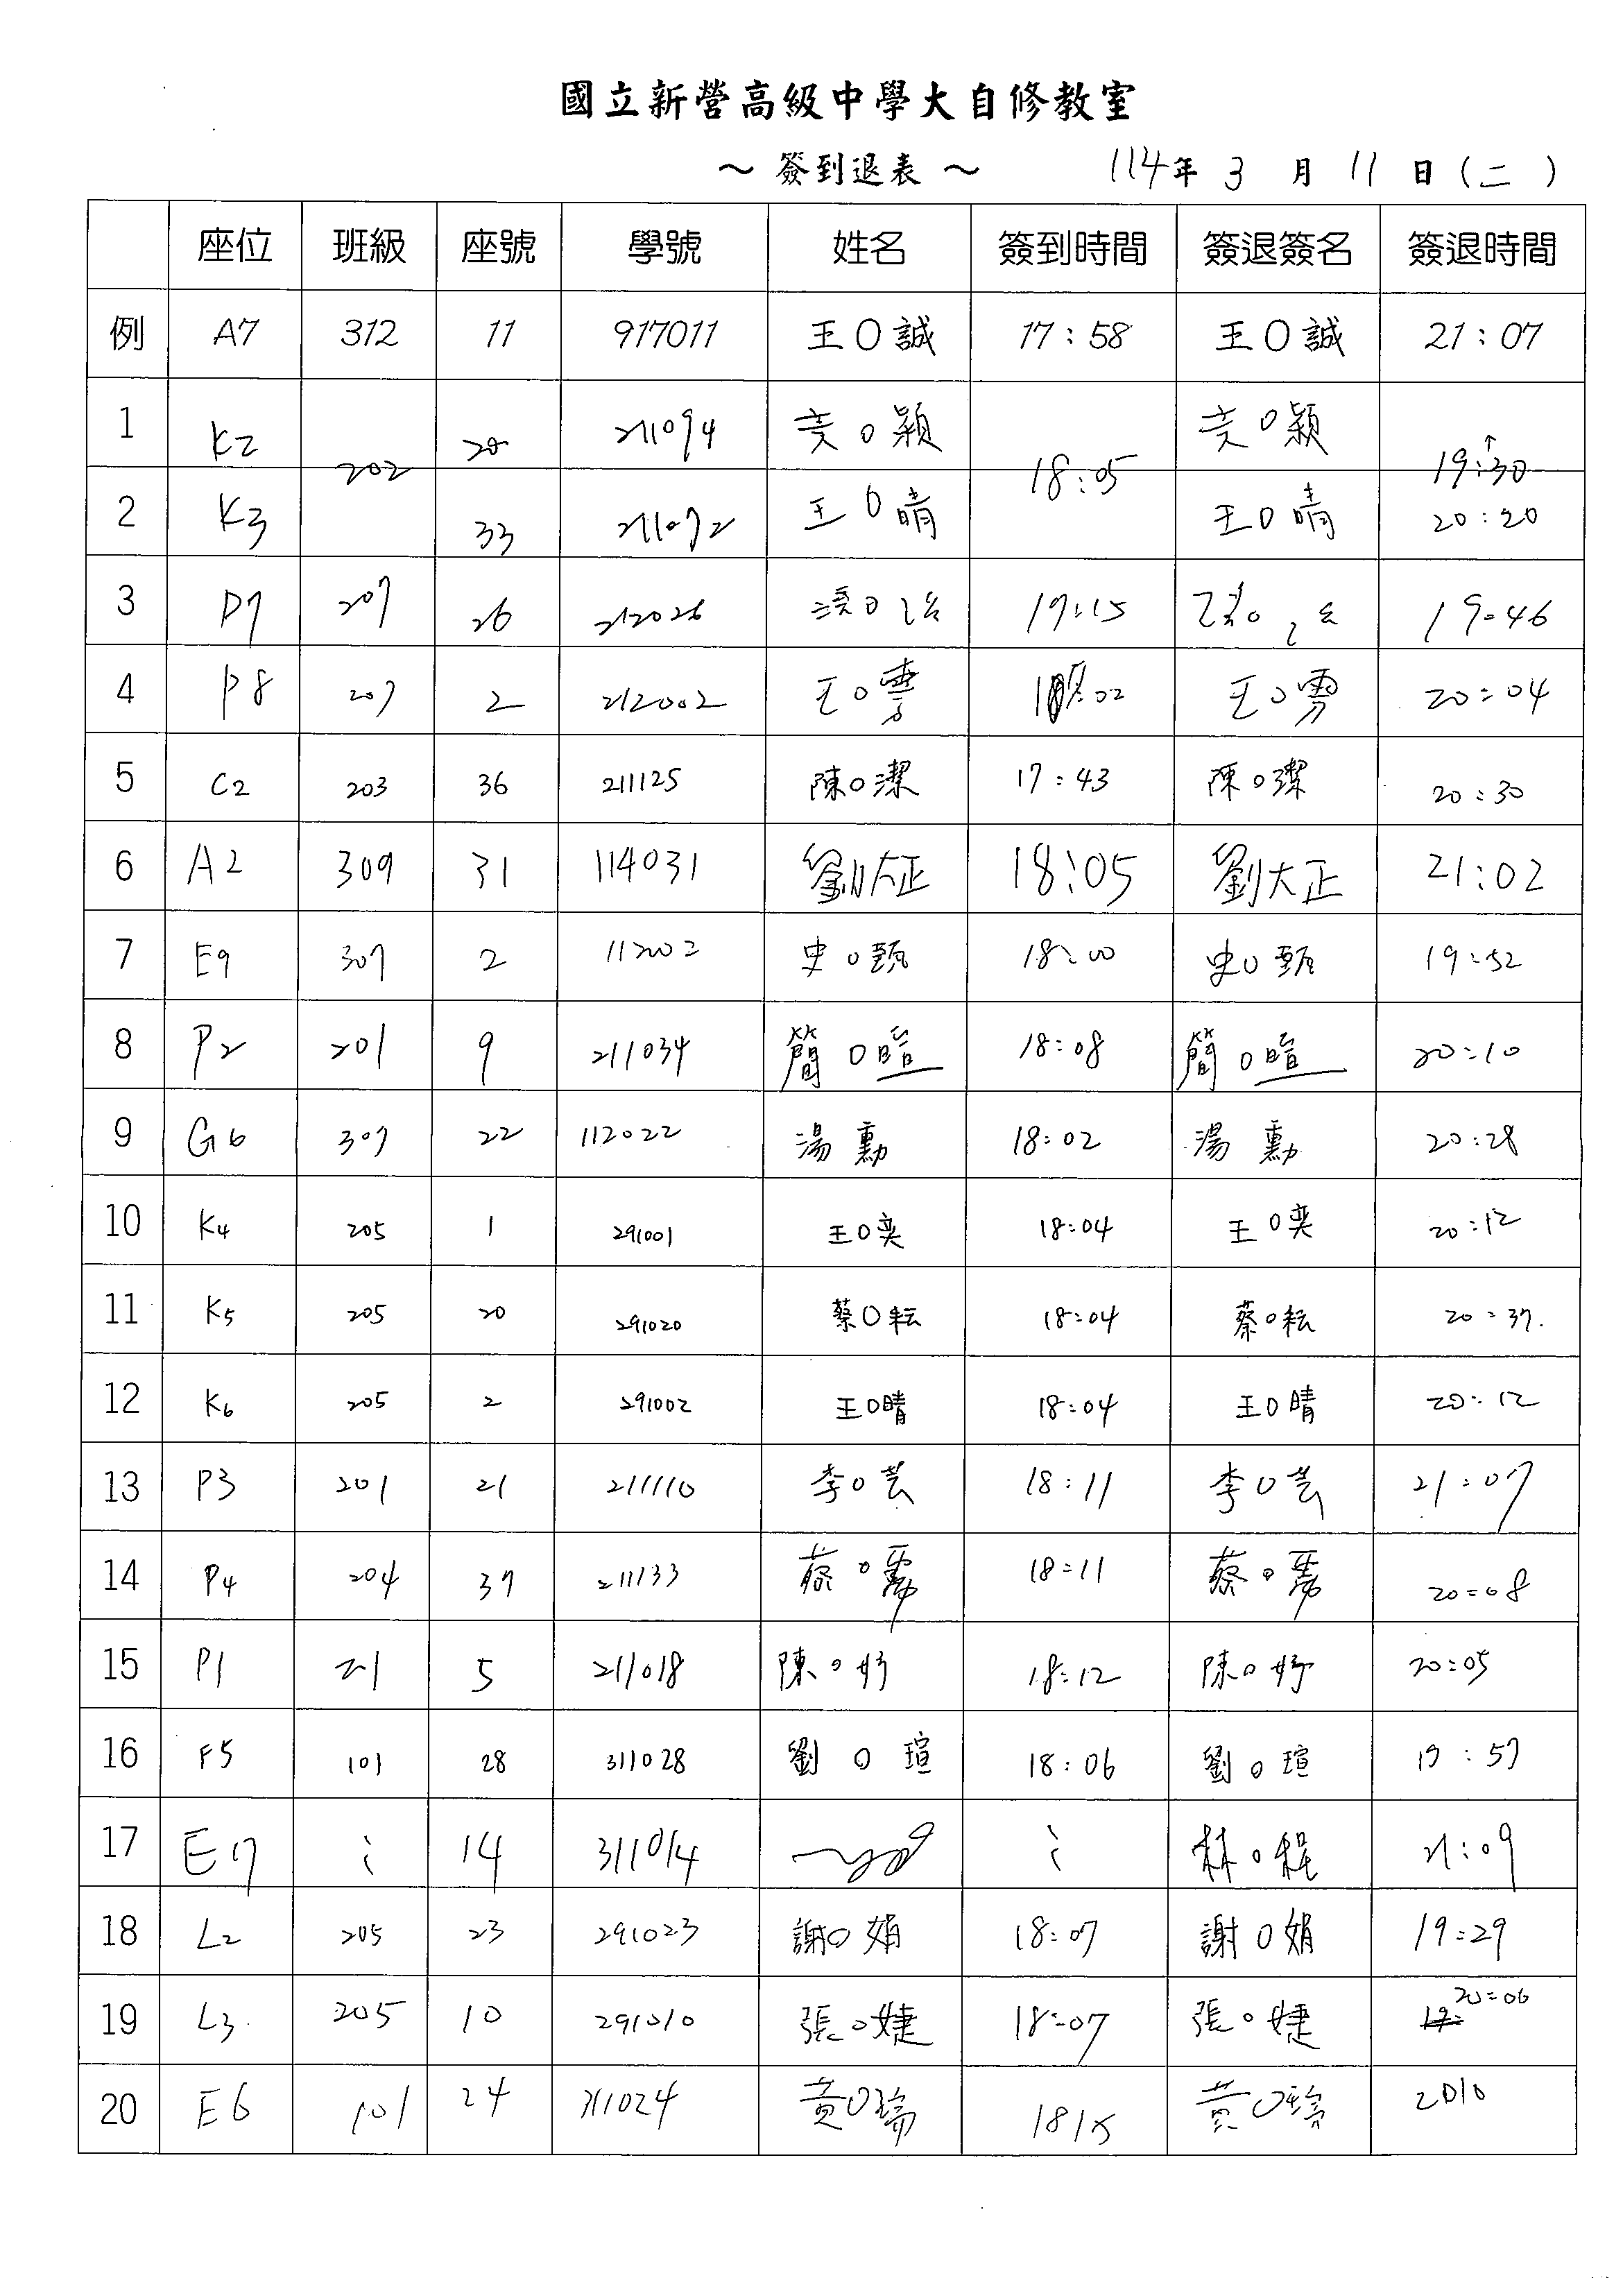 國立新營高級中學大自修教室
～ 簽到退表 ～ 114年 3 月 11 日 (二)
座位 班級 座號 學號 姓名 簽到時間 簽退簽名 簽退時間
例 A7 312 11 917011 王O誠 17:58 王O誠 21:07
1 K2 202 20 211094 黃O穎 18:05 黃O穎 19:30
2 K3 33 211092 王O晴 王O晴 20:20
3 P7 207 26 212026 19:46
4 P8 207 2 212002 王O雱 王O雱 20:04
5 C2 203 36 211125 陳O潔 17:43 陳O潔 20:30
6 A2 309 31 114031 劉大正 18:05 劉大正 21:02
7 E9 307 2 史O甄 18:00 史O甄 19:52
8 P2 201 9 211034 簡O暄 18:08 簡O暄 20:10
9 G6 307 22 112022 湯勳 18:02 湯勳 20:28
10 K4 205 1 291001 王O奕 18:04 王O奕 20:12
11 K5 205 20 291020 蔡O耘 18:04 蔡O耘 20:37
12 K6 205 2 291002 王O晴 18:04 王O晴 20:12
13 P3 201 21 211110 李O芸 18:11 李O芸 21:07
14 P4 204 37 211133 蔡O 18:11 蔡O 20:08
15 P1 5 211018 陳O妤 18:12 陳O妤 20:05
16 F5 101 28 311028 劉O瑄 18:06 劉O瑄 19:57
17 E17 14 311014 林O 21:09
18 L2 205 23 291023 謝O娟 18:07 謝O娟 19:29
19 L3 205 10 291010 張O婕 18:07 張O婕 20:06
20 E6 101 24 311024 黃O 1815 黃O 2010